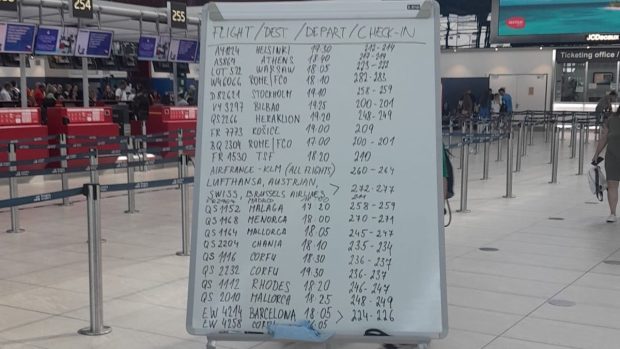 254
255
JCDecaux
Ticketing office
FLIGHT / DEST / DEPART / CHECK-IN
HELSINKI 19:30 212-219
ATHENS
LOT 572 WARSAW 18:05
W46066 ROME/FCO 18:10 282-283
STOCKHOLM 18:10 258-259
VY 3297 BILBAO 19:25 200-201
QS2266 HERAKLION 19:20 248-249
FR 7773 KOŠICE 19:00 209
3Q 2304 ROME/FCO 17:00 200-201
FR 1530 TSF 18:20 210
AIRFRANCE-KLM (ALL FLIGHTS) 260-264
LUFTHANSA, AUSTRIAN,
SWISS, BRUSSELS AIRLINES > 272-277
QS 1152 MALAGA 17:20 258-259
QS 1168 MENORCA 18:00 270-271
QS 1164 MALLORCA 18:05 245-247
QS 2204 CHANIA 18:10 235-234
QS 1116 CORFU 18:30 236-237
QS 2232 CORFU 19:30 236-237
QS 1112 RHODES 18:20 246-247
QS 2010 MALLORCA 18:25 248-249
EW 4214 BARCELONA 18:05 > 224-226
EW 4258 CORFU